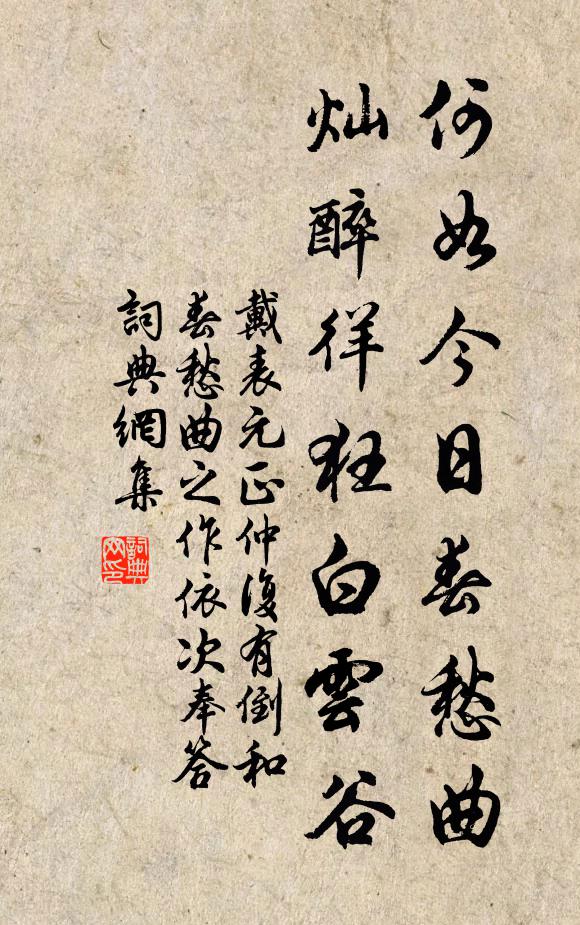 何如今日春愁曲
灿醉徉狂白雲谷
戴表元正仲復有倒和
春愁曲之作依次奉答
詞典網集
詞典
网印